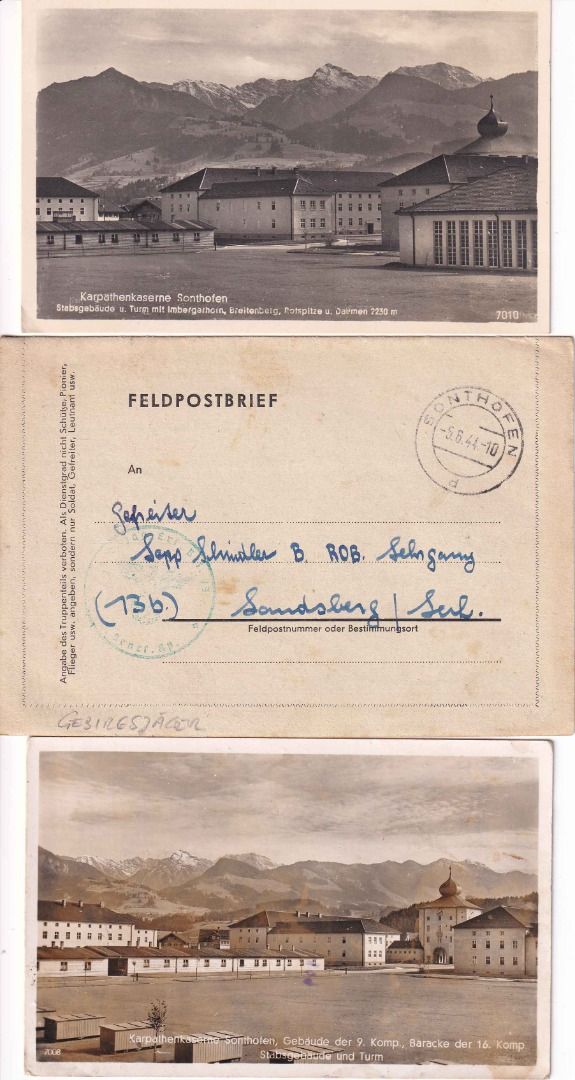 Karpathenkaserne Sonthofen
Stabsgebäude u. Turm mit Imbergerhorn, Breitenberg, Rotspitze u. Daumen 2230 m
7010
Angabe des Truppenteils verboten. Als Dienstgrad nicht Schütze, Pionier,
Flieger usw. angeben, sondern nur Soldat, Gefreiter, Leutnant usw.
FELDPOSTBRIEF
SONTHOFEN
-5.6.44.-10
An
Gefreiter
Sepp Schindler B. ROB. Lehrgang
(13b) Landsberg / Lech.
Feldpostnummer oder Bestimmungsort
GEBIRGSJÄGER
7008
Karpathenkaserne Sonthofen, Gebäude der 9. Komp., Baracke der 16. Komp.
Stabsgebäude und Turm